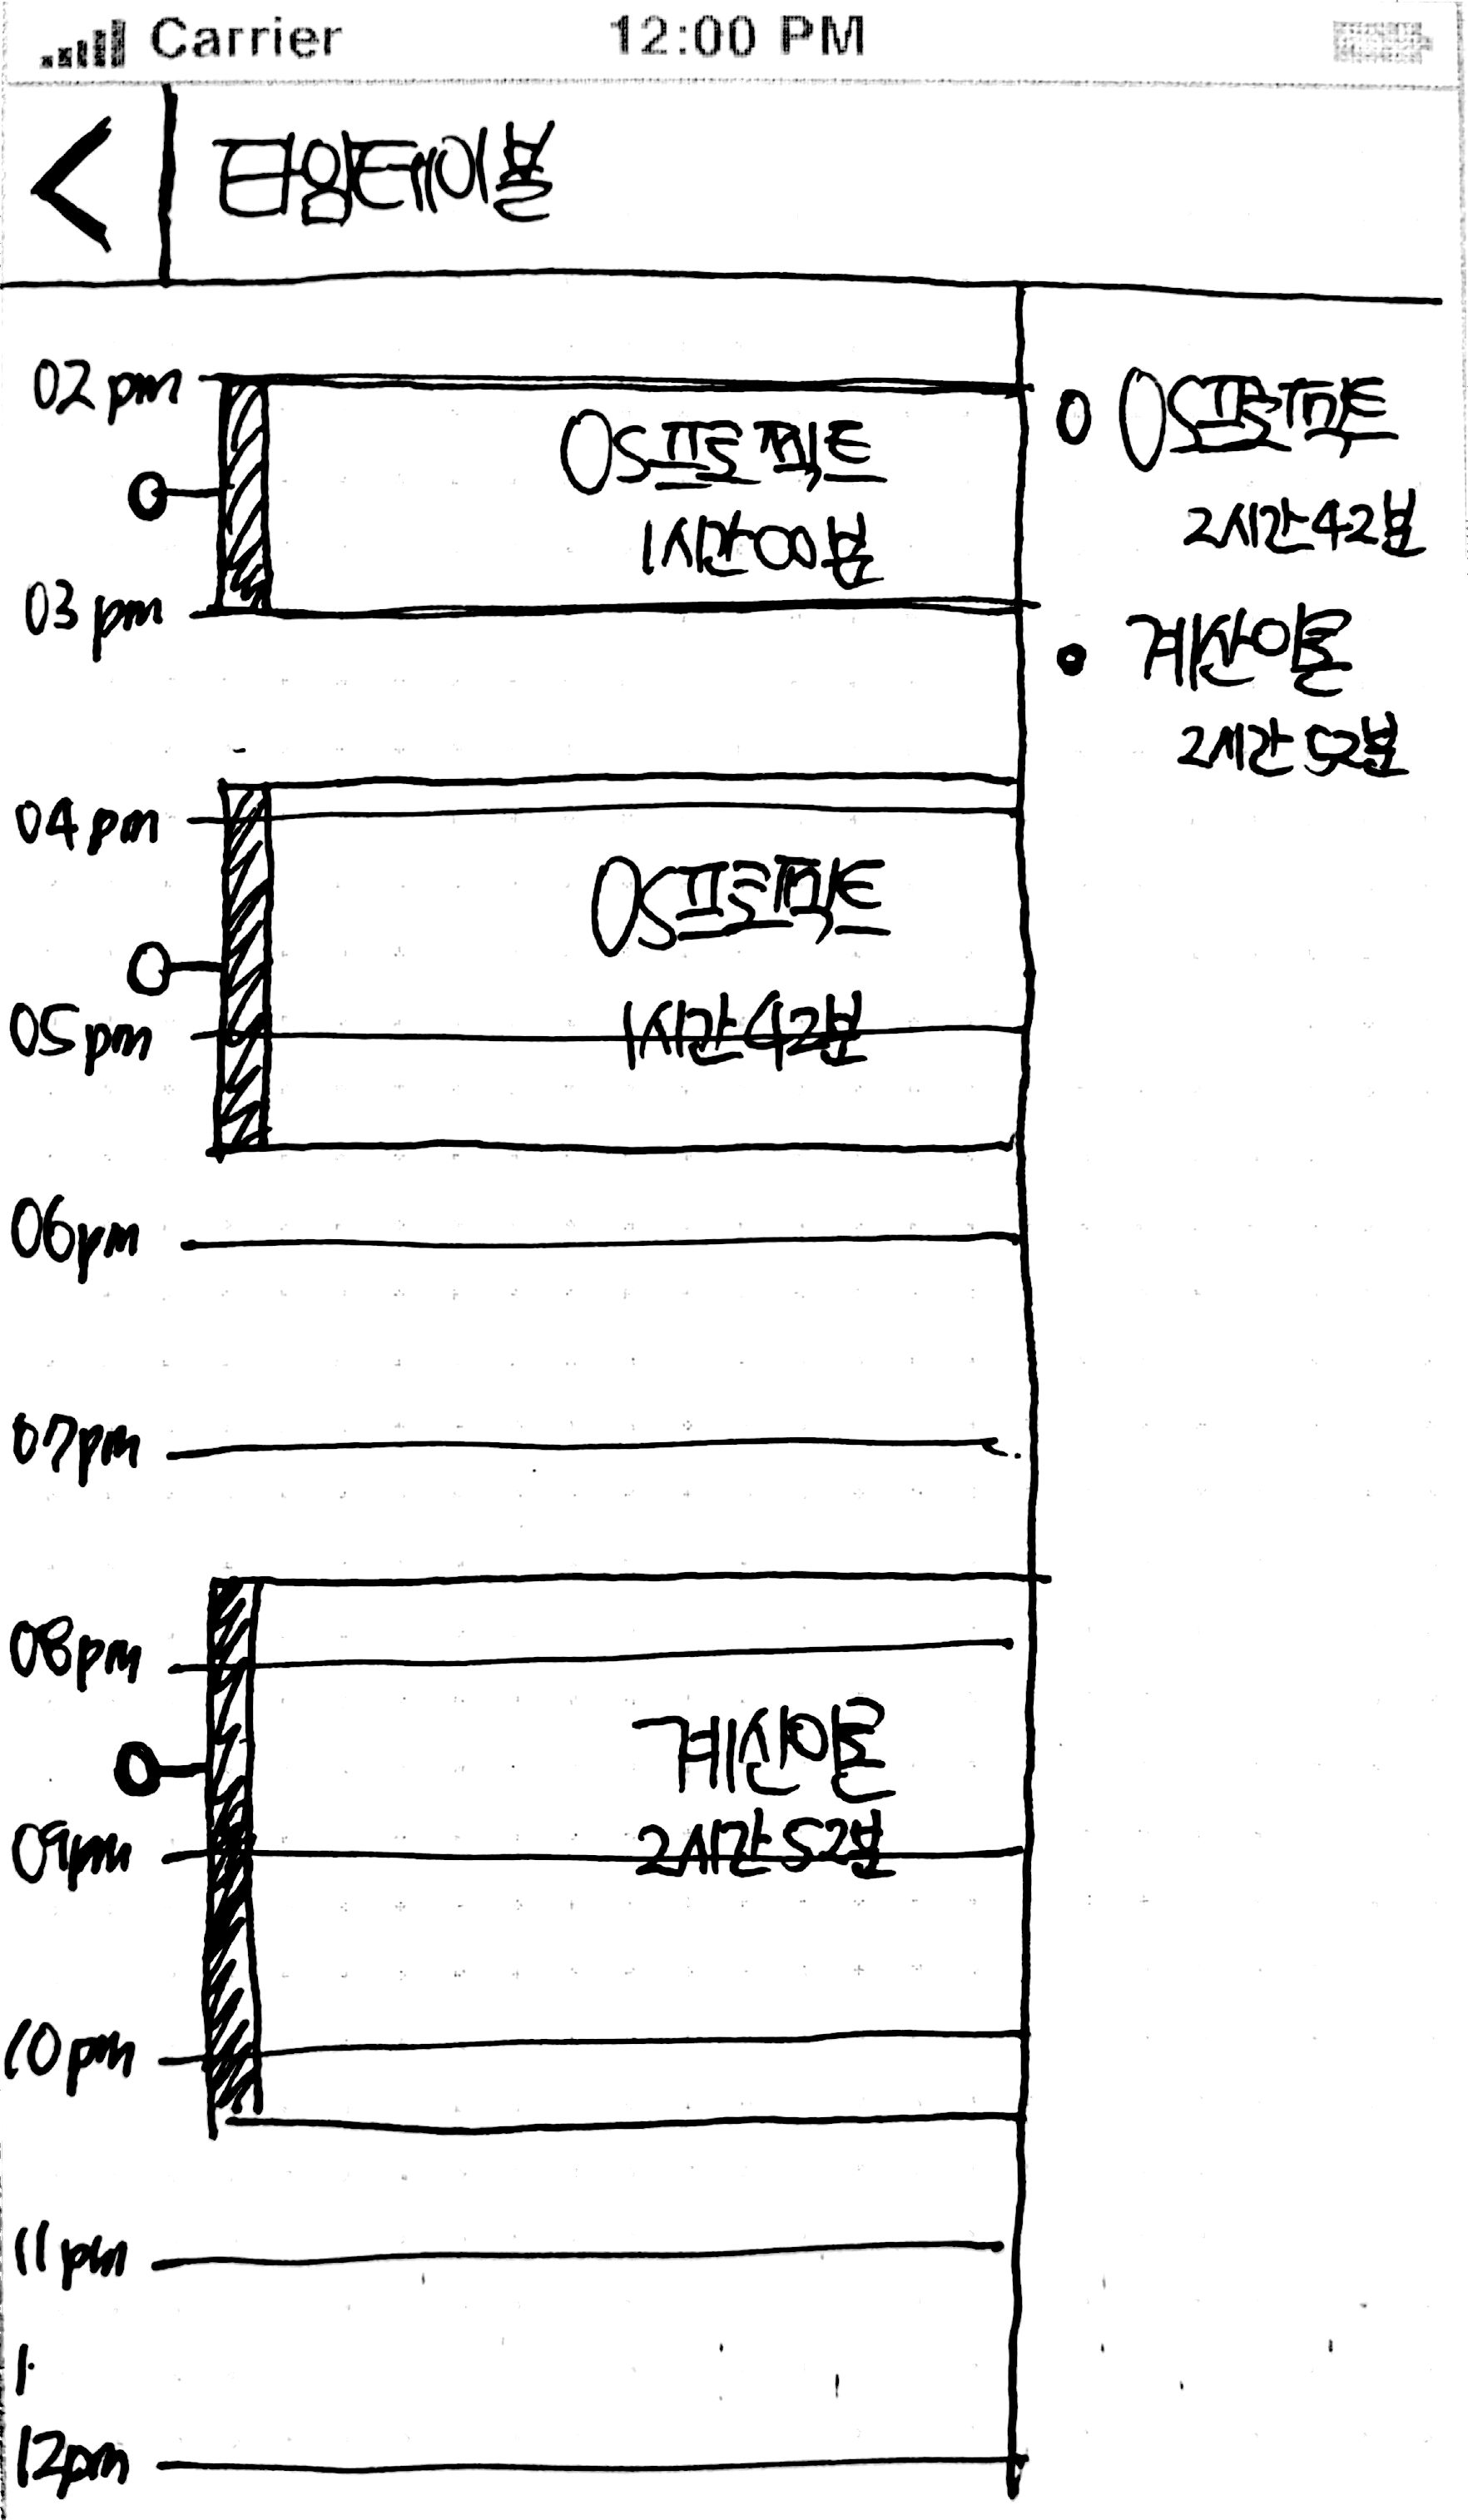 Carrier 12:00 PM
타임테이블
02pm
OS프로젝트
1시간00분
03pm
04pm
OS프로젝트
1시간42분
05pm
06pm
07pm
08pm
계산이론
2시간52분
09pm
10pm
11pm
12pm
OS프로젝트
2시간42분
계산이론
2시간52분